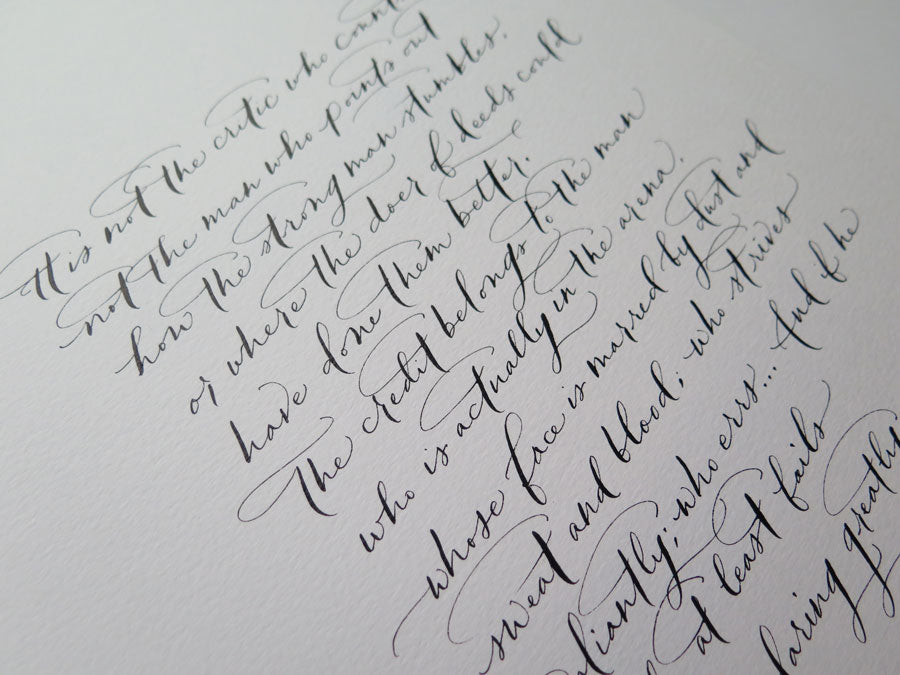 It is not the critic who counts
not the man who points out
how the strong man stumbles.
or where the doer of deeds could
have done them better.
The credit belongs to the man
who is actually in the arena.
whose face is marred by dust and
sweat and blood; who strives
liantly; who errs... And if he
at least fails
daring greatly